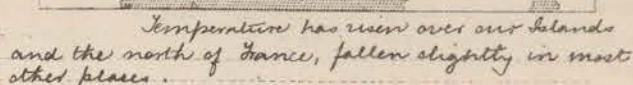 Temperature has risen over our Islands
and the north of France, fallen slightly in most
other places.